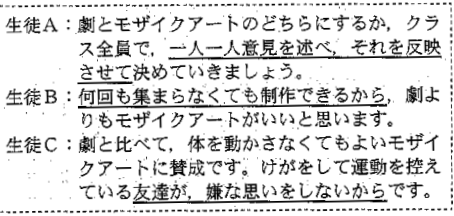 生徒A：劇とモザイクアートのどちらにするか，クラ
ス全員で，一人一人意見を述べ，それを反映
させて決めていきましょう。
生徒B：何回も集まらなくても制作できるから，劇よ
りもモザイクアートがいいと思います。
生徒C：劇と比べて，体を動かさなくてもよいモザイ
クアートに賛成です。けがをして運動を控え
ている友達が，嫌な思いをしないからです。